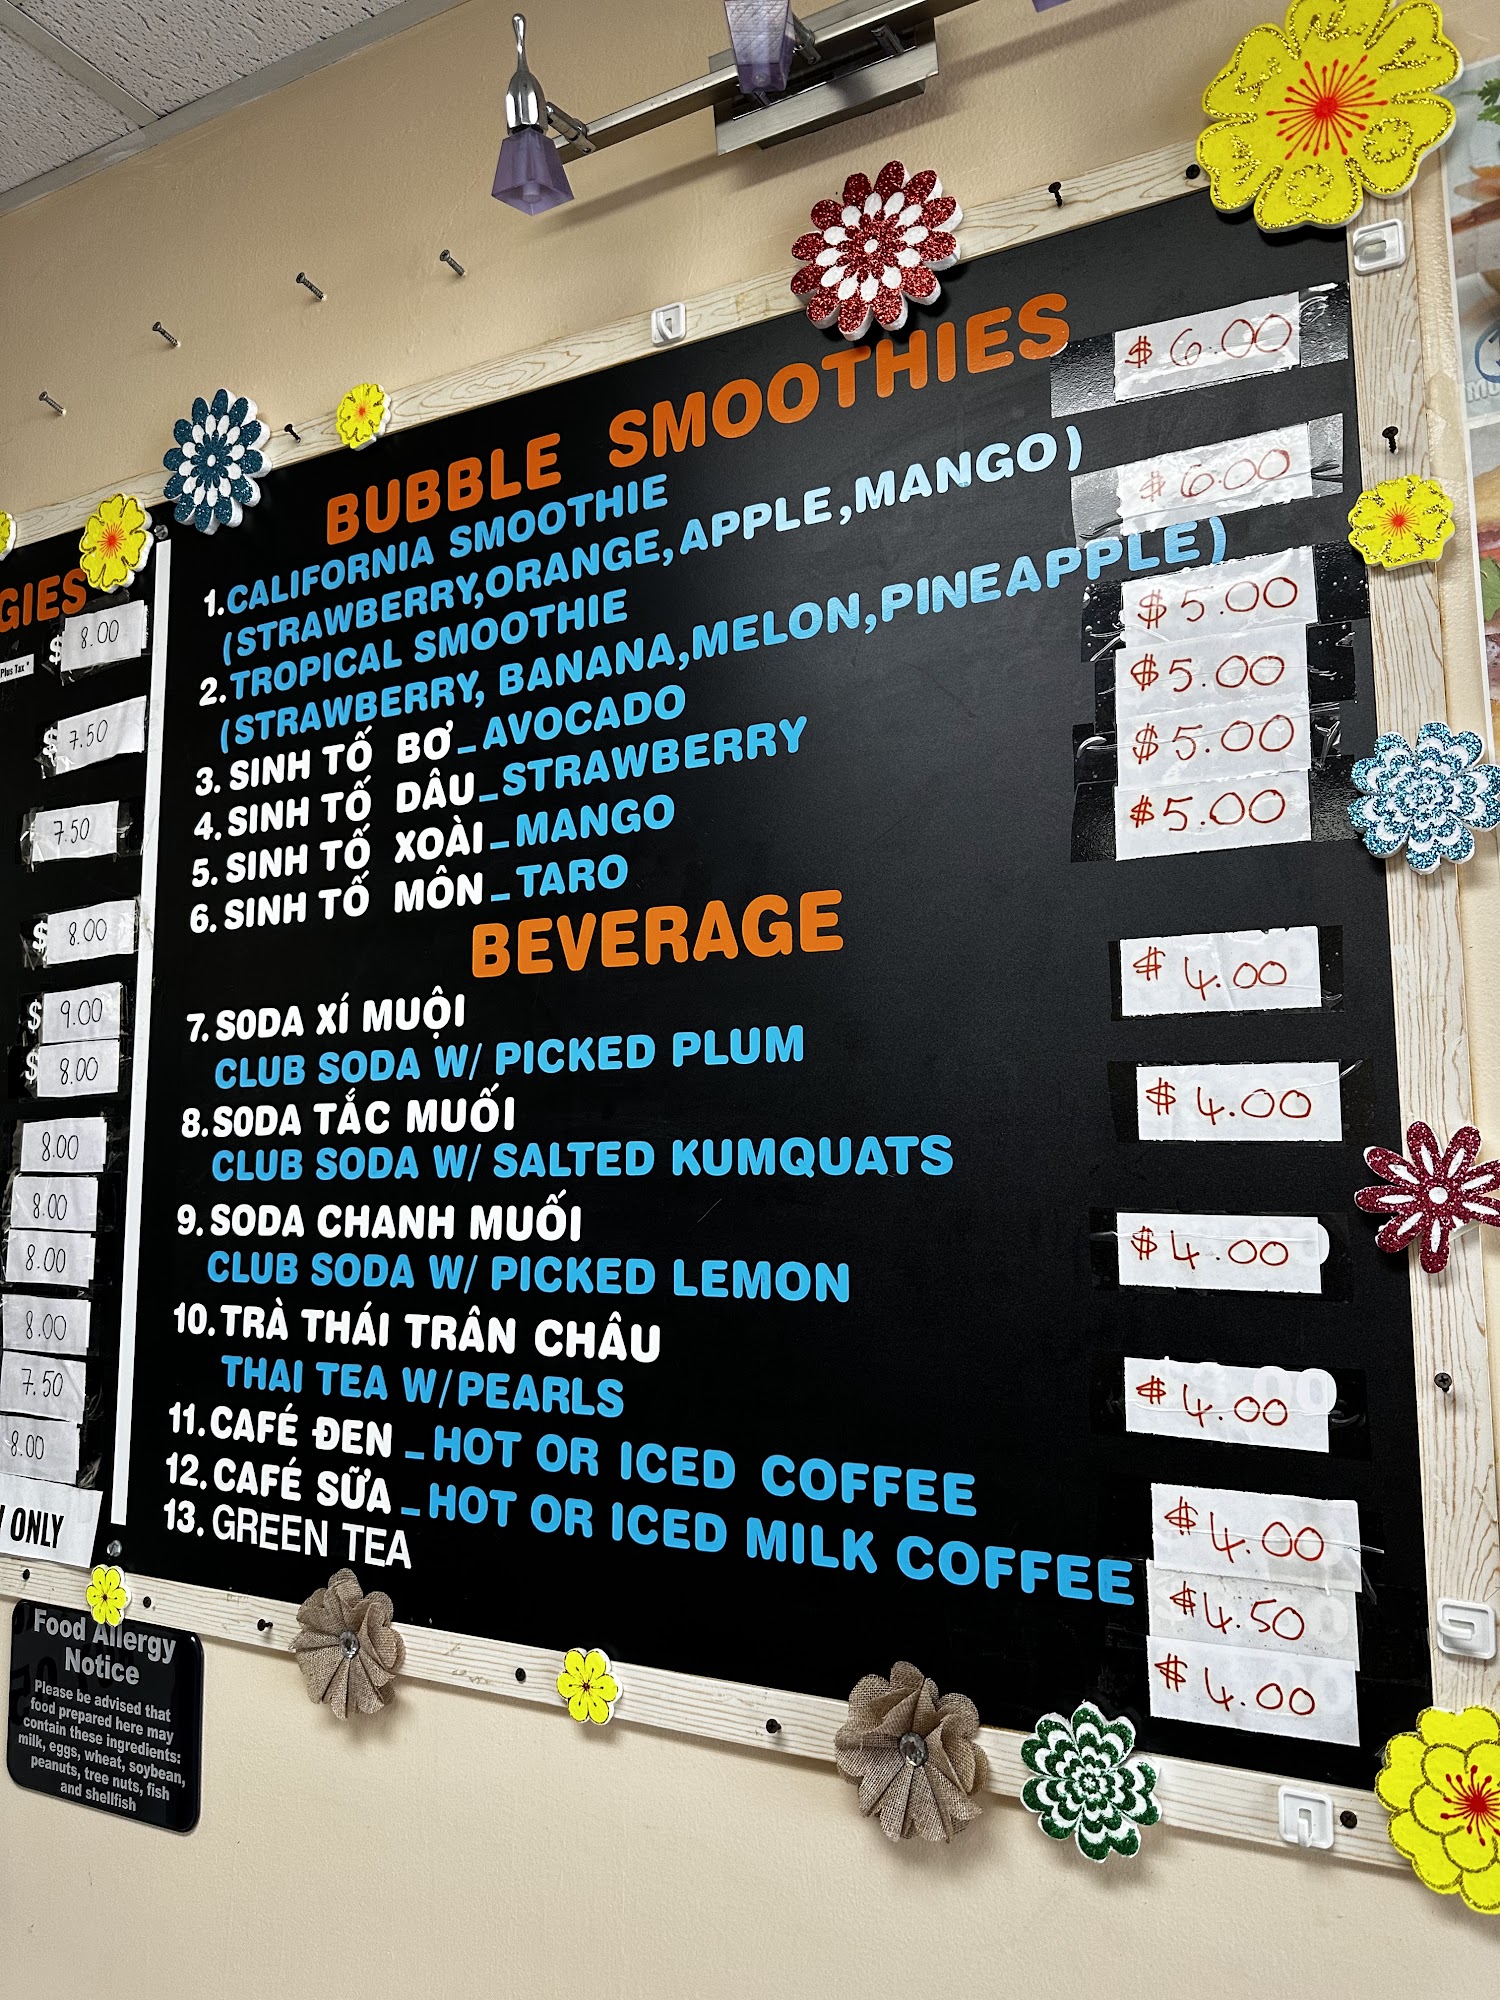 GIES
$ 8.00
Plus Tax *
$ 7.50
7.50
$ 8.00
$ 9.00
$ 8.00
8.00
8.00
8.00
8.00
7.50
8.00
ONLY
BUBBLE SMOOTHIES
1. CALIFORNIA SMOOTHIE $6.00
(STRAWBERRY,ORANGE,APPLE,MANGO)
2. TROPICAL SMOOTHIE $6.00
(STRAWBERRY, BANANA,MELON,PINEAPPLE)
3. SINH TỐ BƠ_AVOCADO $5.00
4. SINH TỐ DÂU_STRAWBERRY $5.00
5. SINH TỐ XOÀI_MANGO $5.00
6. SINH TỐ MÔN_TARO $5.00
BEVERAGE
7. SODA XÍ MUỘI $4.00
CLUB SODA W/ PICKED PLUM
8. SODA TẮC MUỐI $4.00
CLUB SODA W/ SALTED KUMQUATS
9. SODA CHANH MUỐI $4.00
CLUB SODA W/ PICKED LEMON
10. TRÀ THÁI TRÂN CHÂU $4.00
THAI TEA W/PEARLS
11. CAFÉ ĐEN _ HOT OR ICED COFFEE $4.00
12. CAFÉ SỮA _ HOT OR ICED MILK COFFEE $4.50
13. GREEN TEA $4.00
Food Allergy
Notice
Please be advised that
food prepared here may
contain these ingredients:
milk, eggs, wheat, soybean,
peanuts, tree nuts, fish
and shellfish